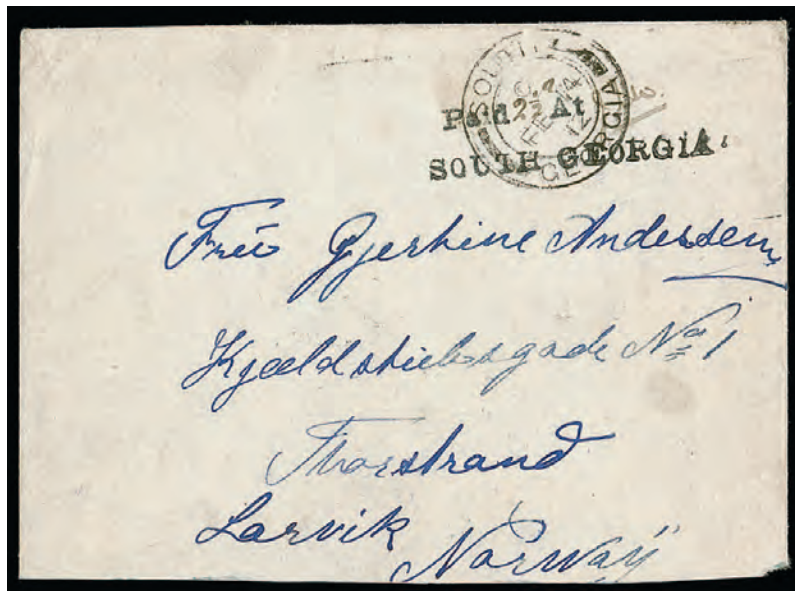 SOUTH GEORGIA
FE 14
12
Paid At
SOUTH GEORGIA.
Frü Gjerhine Andersen
Kjældstielsgade No 1
Thorstrand
Larvik
Norway